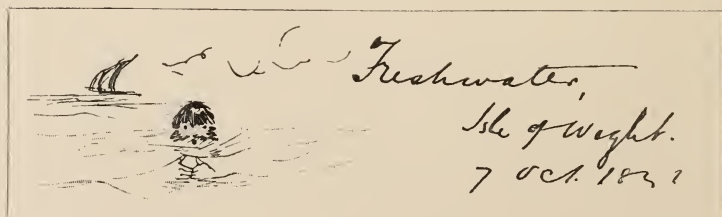 Freshwater,
Isle of Wight.
7 Oct.